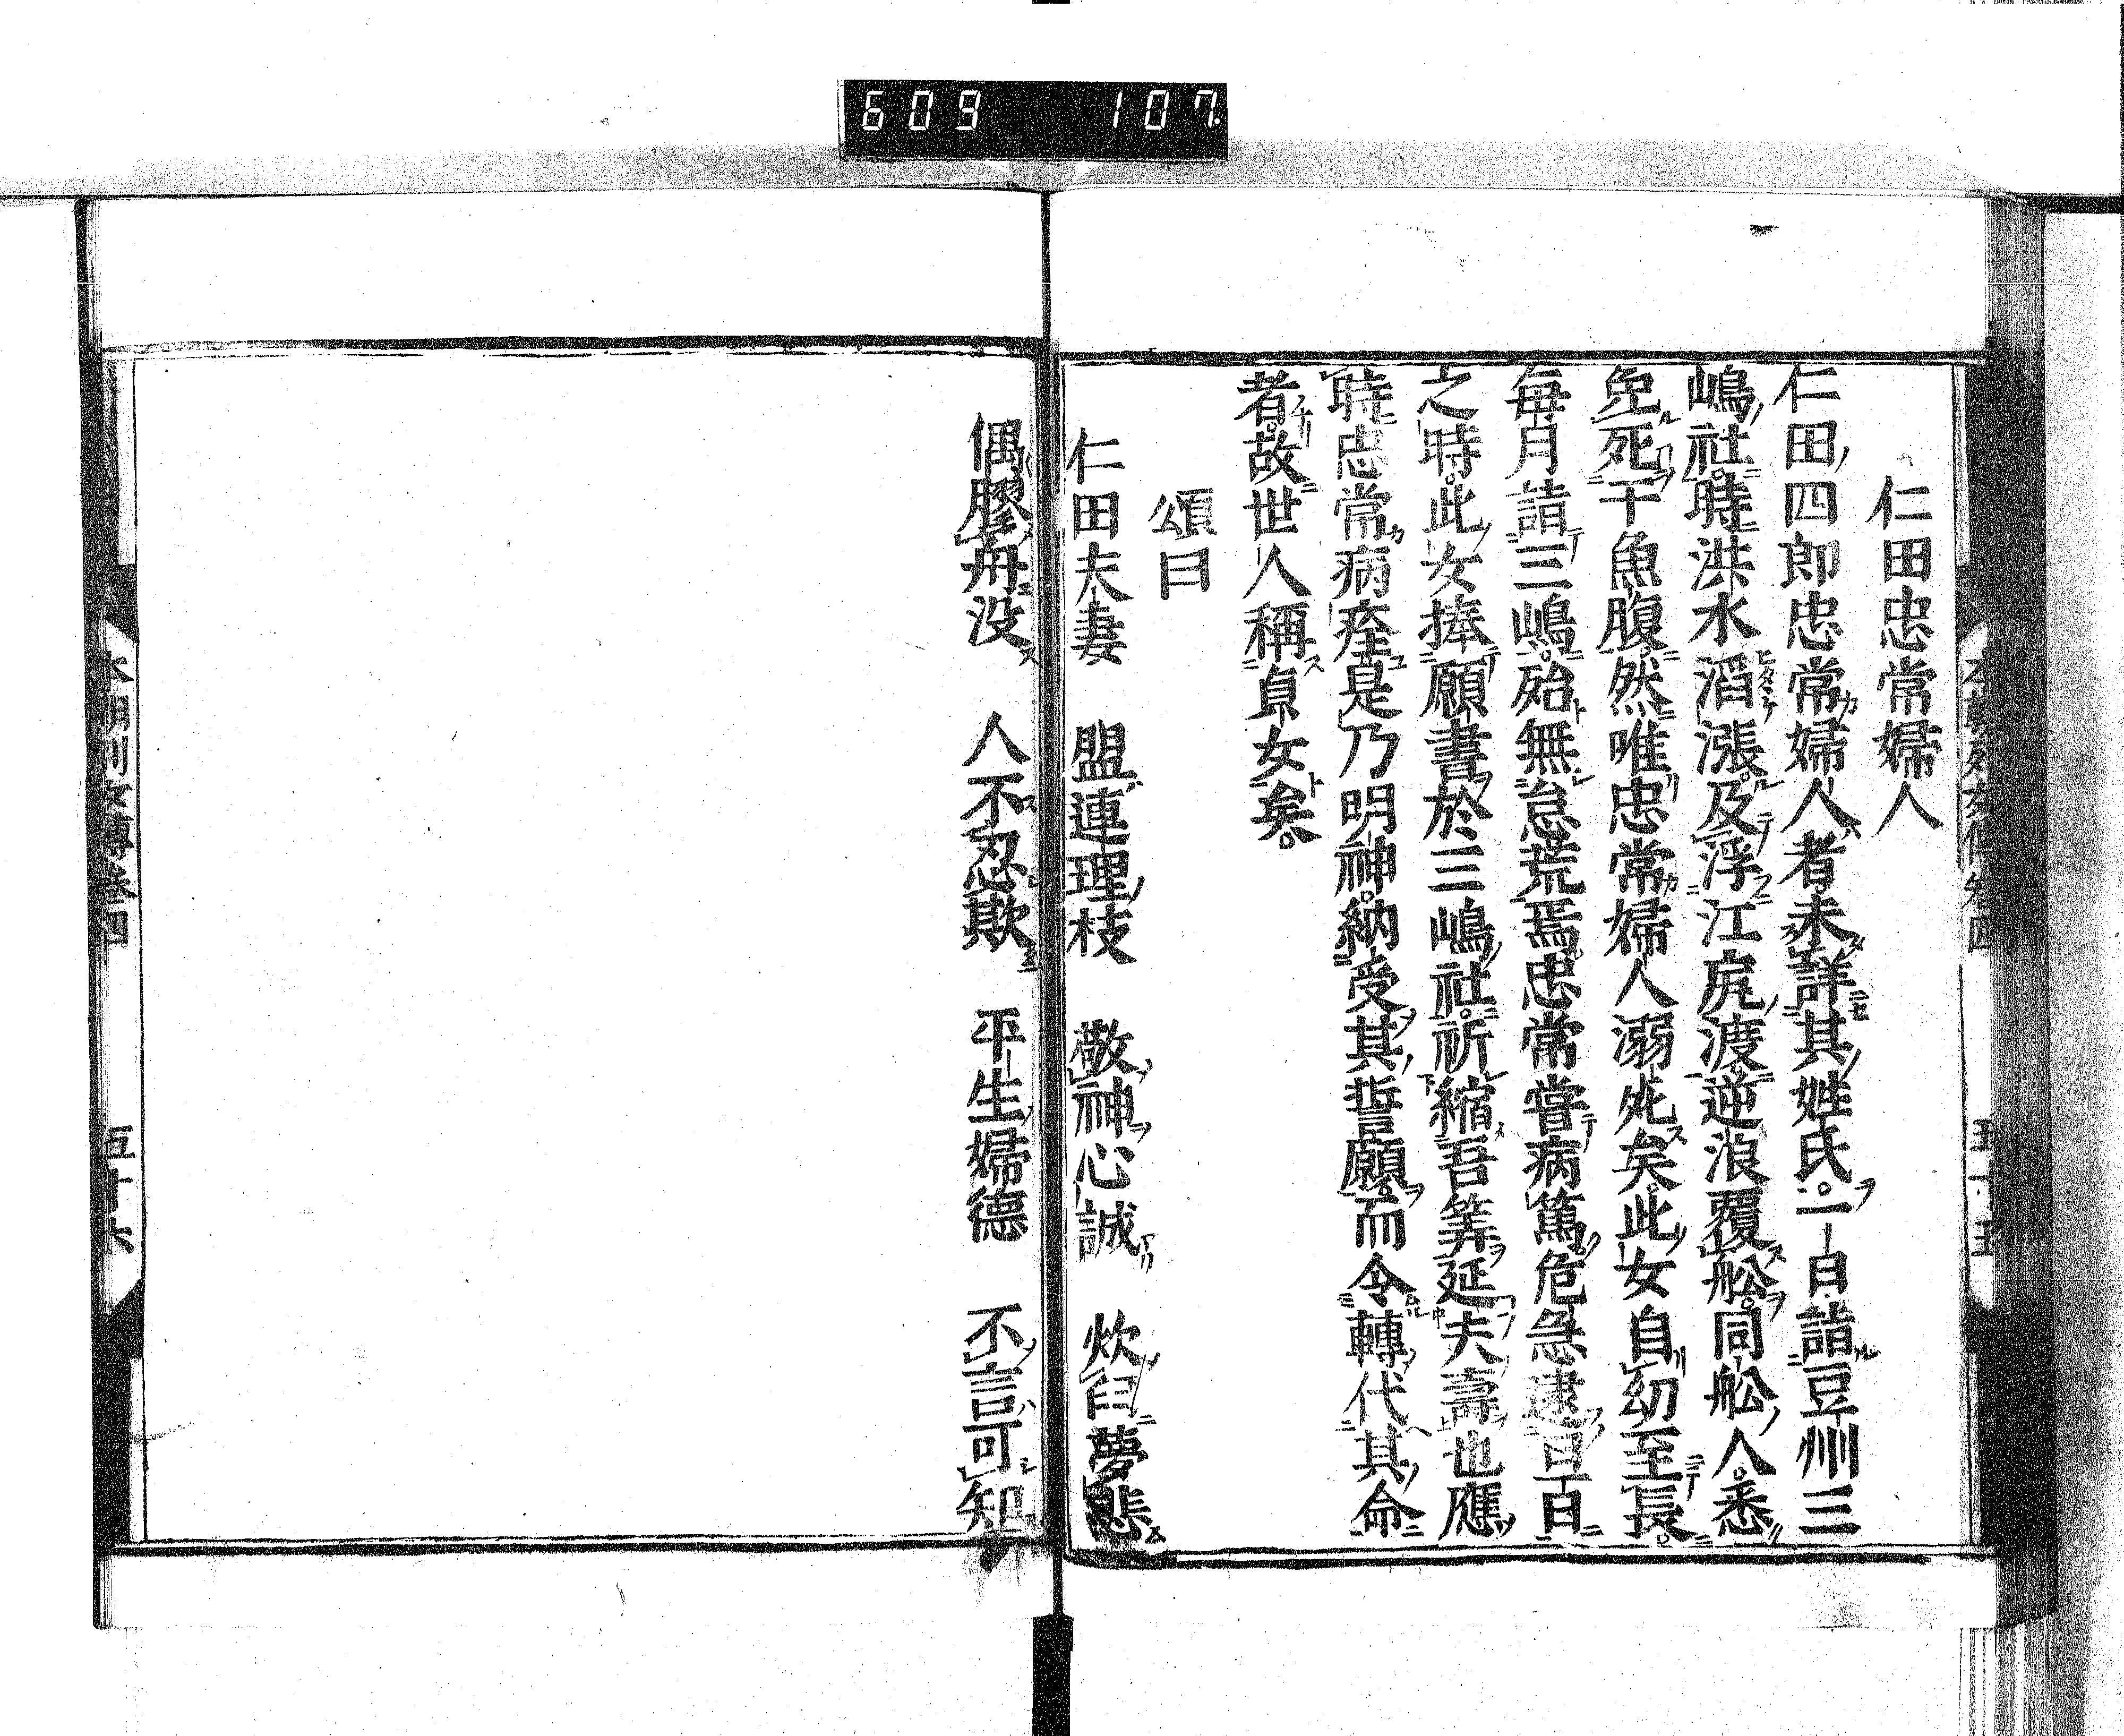 609 107
仁田忠常婦人
仁田四郎忠常婦人者未詳其姓氏一日詣豆州三
嶋社時洪水滔漲及浮江尻渡逆浪覆舩同舩人悉
免死于魚腹然唯忠常婦人溺死矣此女自幼至長
毎月詣三嶋殆無怠荒焉忠常嘗病篤危急逮百日
之時此女捧願書於三嶋社祈縮吾筭延夫壽也應
時忠常病痊是乃明神納受其誓願而令轉代其命
者故世人稱貞女矣
頌曰
仁田夫妻 盟連理枝 敬神心誠 炊臼夢悲
偶膠舟没 人不忍欺 平生婦德 不言可知
本朝列女傳卷四 五十六